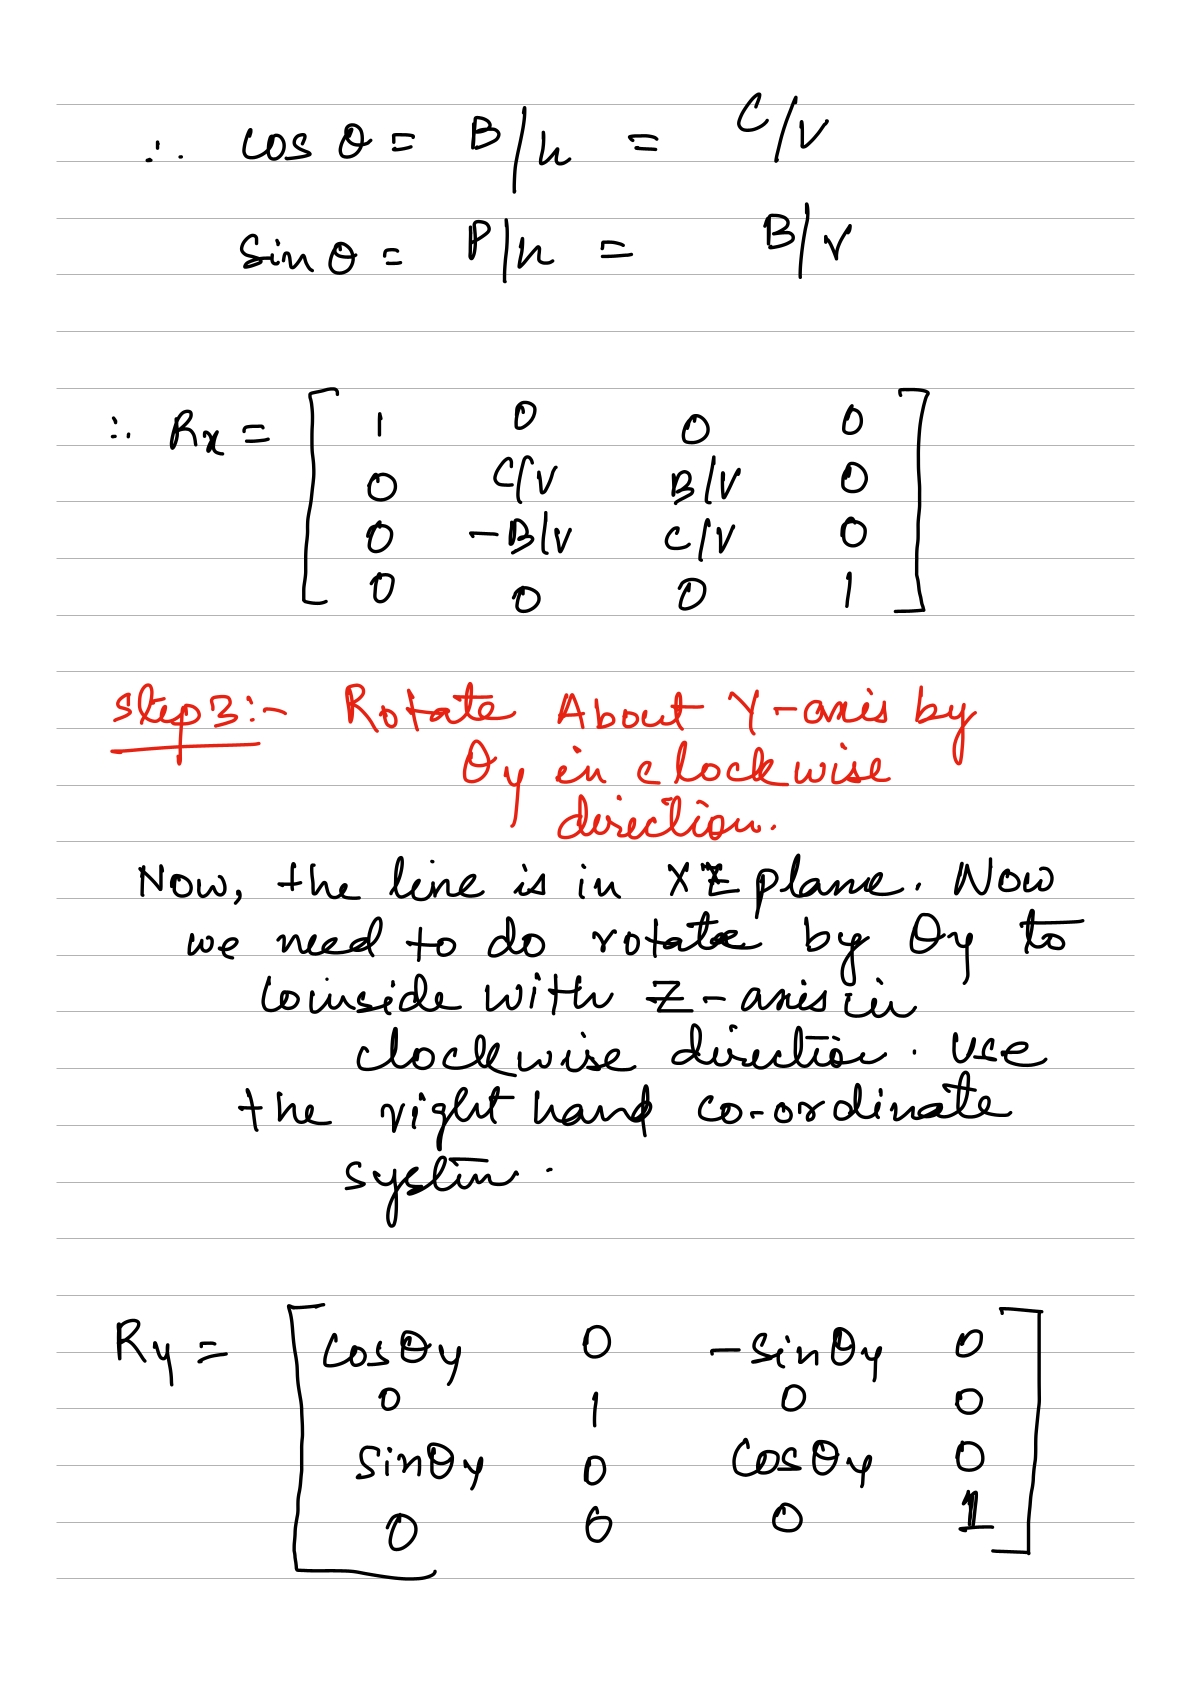 ∴ cos θ = B/h = C/V
sin θ = P/h = B/V
∴ Rx = [ 1 0 0 0
0 C/V B/V 0
0 -B/V C/V 0
0 0 0 1 ]
Step 3:- Rotate About Y-axis by
θy in clockwise
direction.
Now, the line is in XZ plane. Now
we need to do rotate by θy to
coinside with Z-axis in
clockwise direction. Use
the right hand co-ordinate
system.
Ry = [ cosθy 0 -sinθy 0
0 1 0 0
sinθy 0 cosθy 0
0 0 0 1 ]